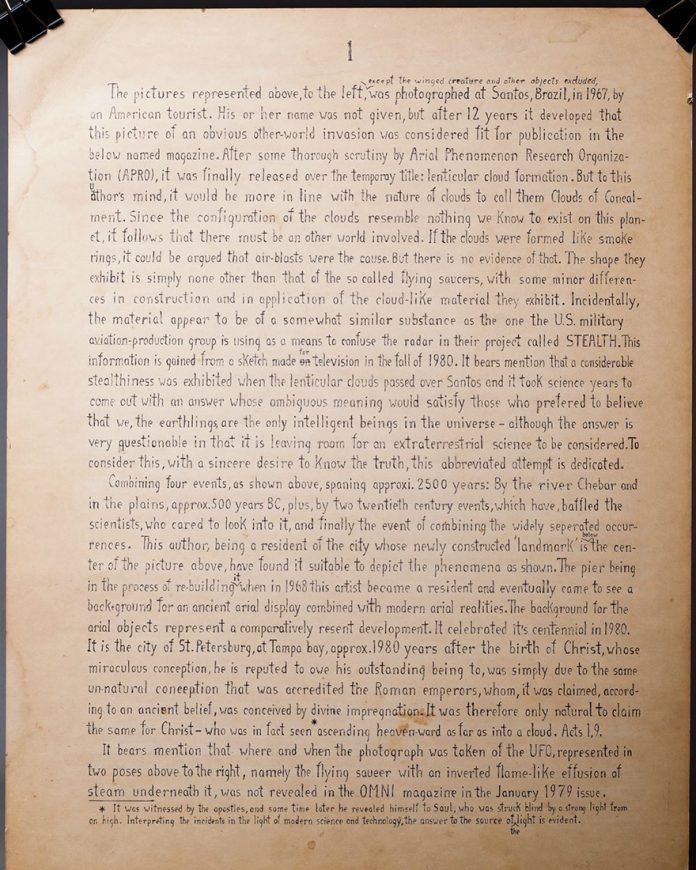 1
except the winged creature and other objects excluded,
The pictures represented above, to the left, was photographed at Santos, Brazil, in 1967, by
an American tourist. His or her name was not given, but after 12 years it developed that
this picture of an obvious other-world invasion was considered fit for publication in the
below named magazine. After some thorough scrutiny by Arial Phenomenon Research Organiza-
tion (APRO), it was finally released over the temporay title: lenticular cloud formation. But to this
u
athor's mind, it would be more in line with the nature of clouds to call them Clouds of Conceal-
ment. Since the configuration of the clouds resemble nothing we know to exist on this plan-
et, it follows that there must be an other world involved. If the clouds were formed like smoke
rings, it could be argued that air-blasts were the cause. But there is no evidence of that. The shape they
exhibit is simply none other than that of the so called flying saucers, with some minor differen-
ces in construction and in application of the cloud-like material they exhibit. Incidentally,
the material appear to be of a somewhat similar substance as the one the U.S. military
aviation-production group is using as a means to confuse the radar in their project called STEALTH. This
for
information is gained from a sketch made on television in the fall of 1980. It bears mention that a considerable
stealthiness was exhibited when the lenticular clouds passed over Santos and it took science years to
come out with an answer whose ambiguous meaning would satisfy those who prefered to believe
that we, the earthlings, are the only intelligent beings in the universe – although the answer is
very questionable in that it is leaving room for an extraterrestrial science to be considered. To
consider this, with a sincere desire to know the truth, this abbreviated attempt is dedicated.
Combining four events, as shown above, spaning approxi. 2500 years: By the river Chebar and
in the plains, approx. 500 years BC, plus, by two twentieth century events, which have, baffled the
scientists, who cared to look into it, and finally the event of combining the widely seperated occur-
below
rences. This author, being a resident of the city whose newly constructed 'landmark' is the cen-
ter of the picture above, have found it suitable to depict the phenomena as shown. The pier being
it
in the process of re-building when in 1968 this artist became a resident and eventually came to see a
back-ground for an ancient arial display combined with modern arial realities. The background for the
arial objects represent a comparatively resent development. It celebrated it's centennial in 1980.
It is the city of St. Petersburg, at Tampa bay, approx. 1980 years after the birth of Christ, whose
miraculous conception, he is reputed to owe his outstanding being to, was simply due to the same
un-natural conception that was accredited the Roman emperors, whom, it was claimed, accord-
ing to an ancient belief, was conceived by divine impregnations. It was therefore only natural to claim
the same for Christ – who was in fact seen * ascending heaven-ward as far as into a cloud. Acts 1,9.
It bears mention that where and when the photograph was taken of the UFO, represented in
two poses above to the right, namely the flying saucer with an inverted flame-like effusion of
steam underneath it, was not revealed in the OMNI magazine in the January 1979 issue.
* It was witnessed by the apostles, and some time later he revealed himself to Saul, who was struck blind by a strong light from
on high. Interpreting the incidents in the light of modern science and technology, the answer to the source of light is evident.
the